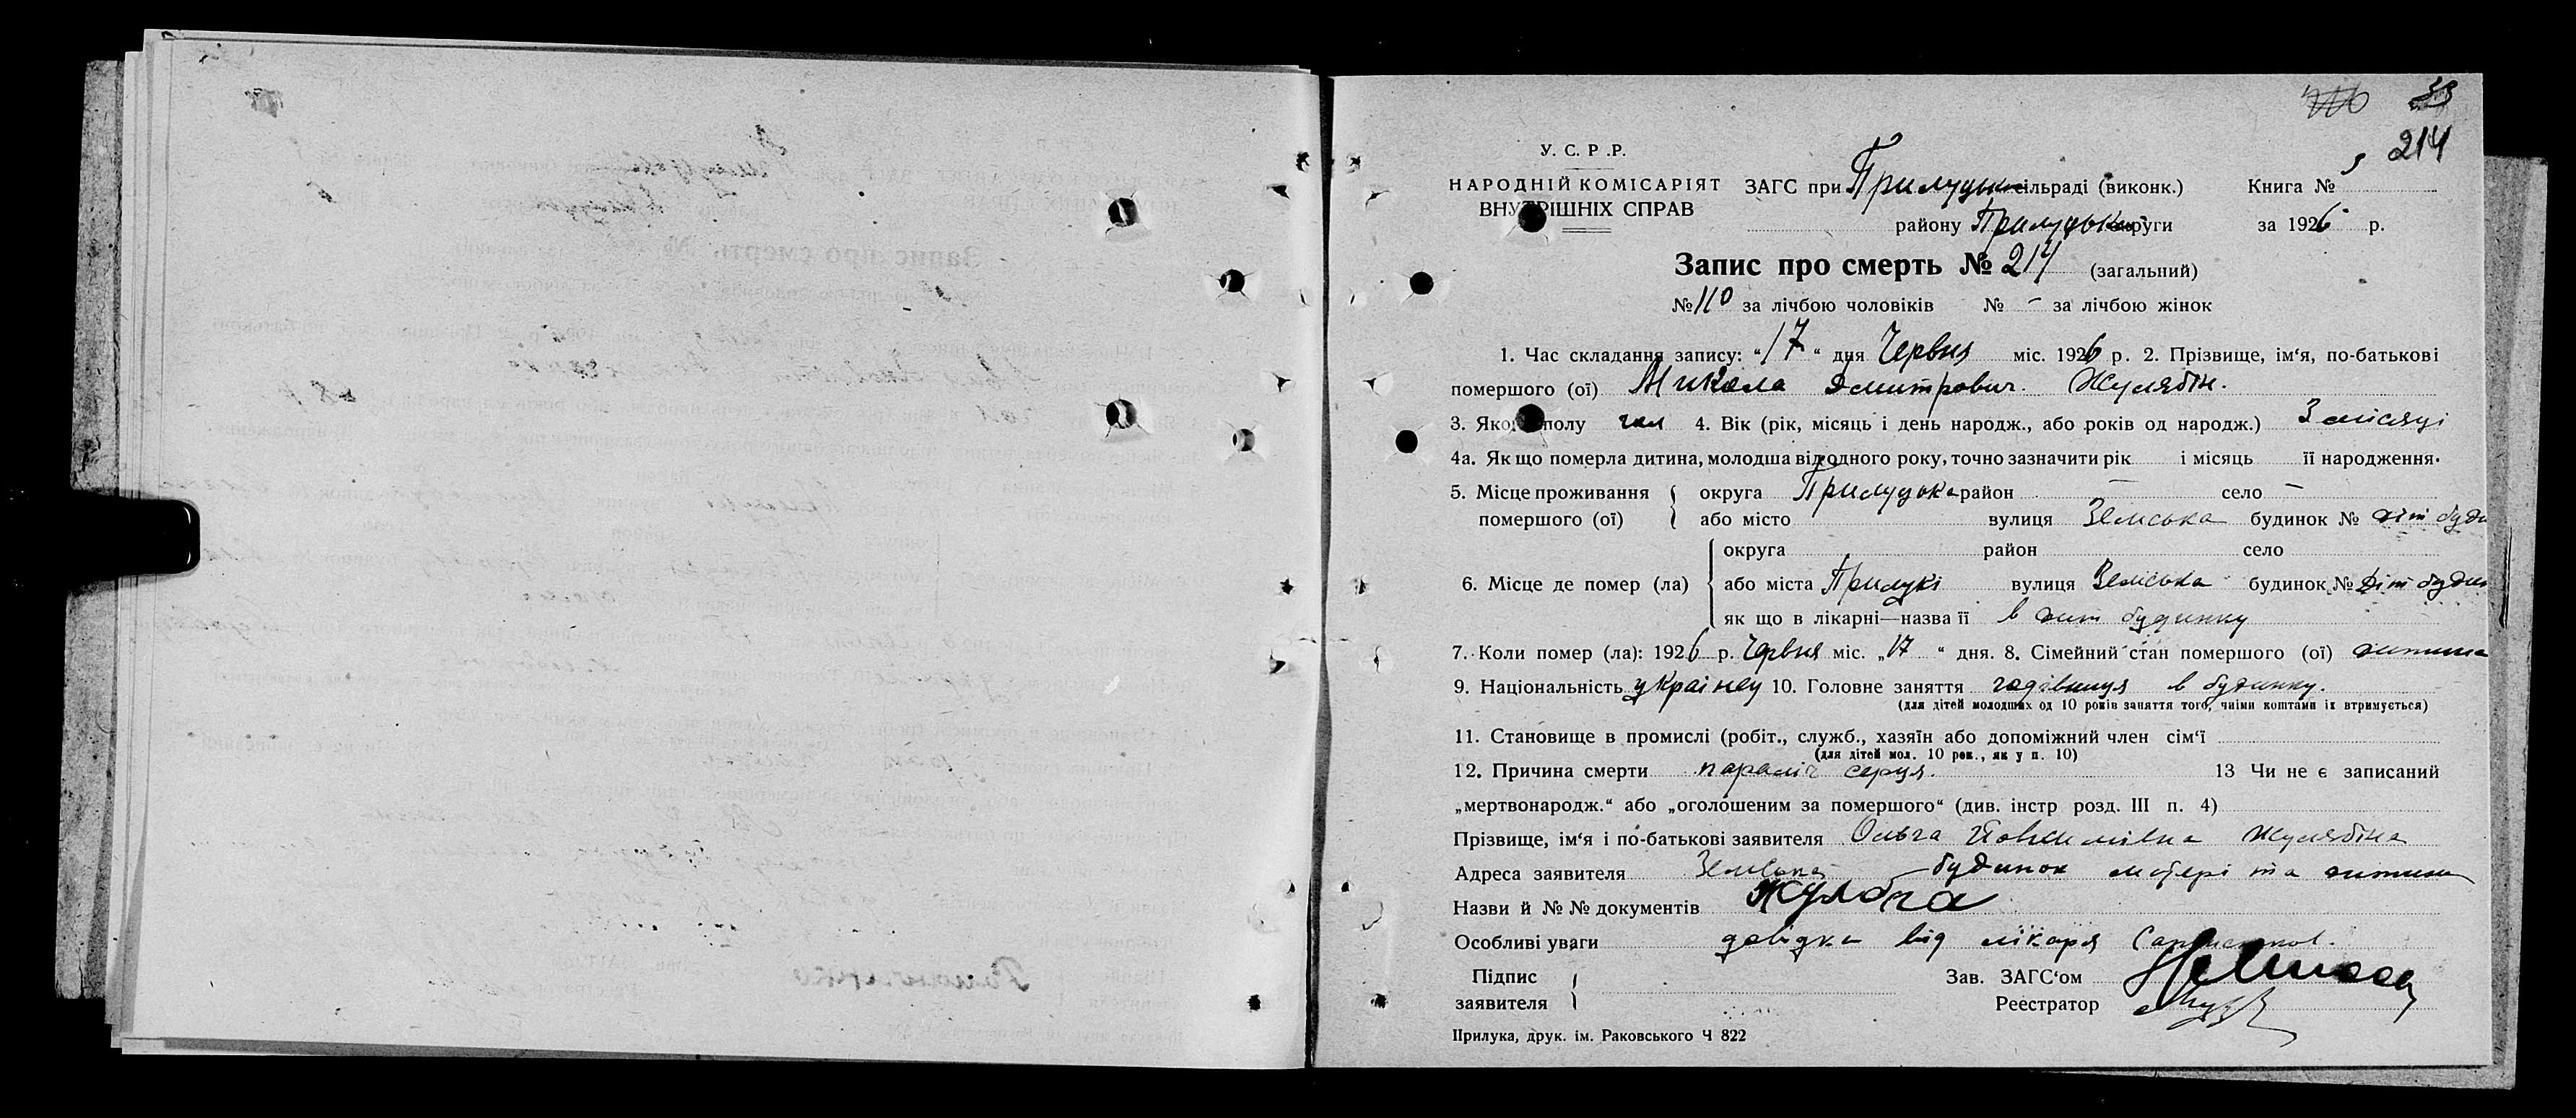 33
214
У. С. Р .Р.
НАРОДНІЙ КОМІСАРІЯТ
ВНУТРІШНІХ СПРАВ
ЗАГС при Прилуцьк. сільраді (виконк.)
Книга № 5
району Прилуцької округи
за 1926 р.
Запис про смерть № 214 (загальний)
№ 110 за лічбою чоловіків № – за лічбою жінок
1. Час складання запису: “17“ дня Червня міс. 1926 р. 2. Прізвище, ім‘я, по-батькові
помершого (ої) Микола Дмитрович Жулябін.
3. Якого полу чол 4. Вік (рік, місяць і день народж., або років од народж.) 3 місяці
4а. Як що померла дитина, молодша від одного року, точно зазначити рік і місяць її народження.
5. Місце проживання помершого (ої) { округа Прилуцька район – село –
або місто вулиця Земська будинок № дит буди
6. Місце де помер (ла) { округа район село
або міста Прилукі вулиця Земська будинок № дит будин
як що в лікарні—назва її в дит будинку
7. Коли помер (ла): 1926 р. Червня міс. „17“ дня. 8. Сімейний стан помершого (ої) дитина
9. Національність українец 10. Головне заняття годівниця в будинку.
(для дітей молодших од 10 років заняття того, чиїми коштами їх втримується)
11. Становище в промислі (робіт., служб., хазяїн або допоміжний член сім‘ї
(для дітей мол. 10 рок., як у п. 10)
12. Причина смерти параліч серця. 13 Чи не є записаний
„мертвонародж.“ або „оголошеним за помершого“ (див. інстр розд. III п. 4)
Прізвище, ім‘я і по-батькові заявителя Ольга Жулябіна
Адреса заявителя Земська будинок матері та дитини
Назви й № № документів
Особливі уваги довідка від лікаря
Підпис заявителя {
Зав. ЗАГС‘ом
Реєстратор
Прилука, друк. ім. Раковського Ч 822